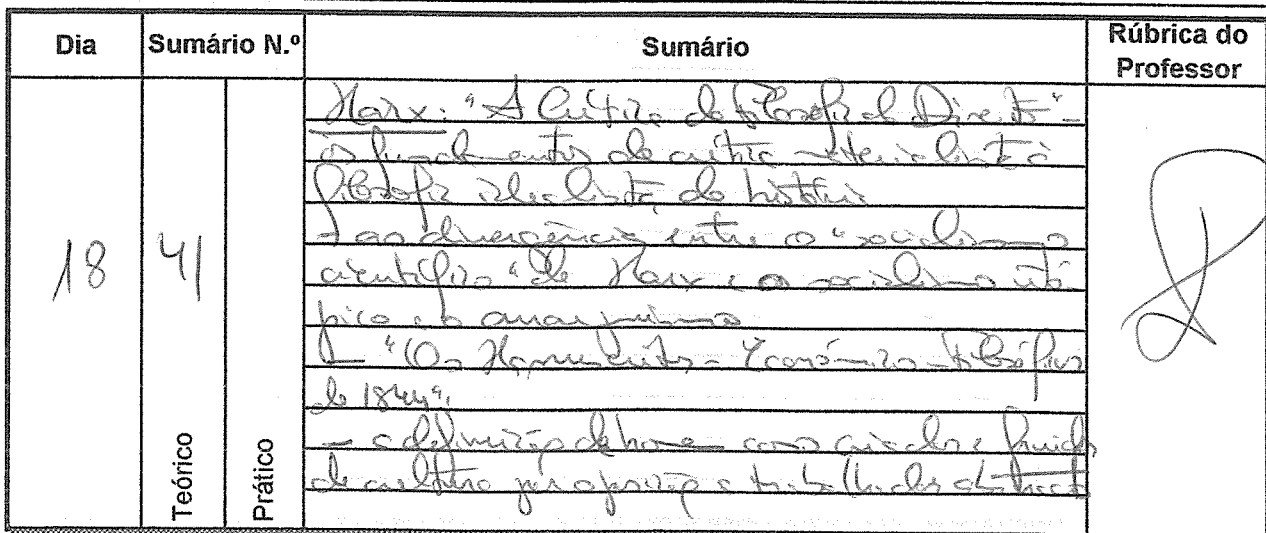 Dia Sumário N.º Sumário Rúbrica do Professor
18 41
Teórico Prático
Marx: "A Crítica da Filosofia do Direito" -
os fundamentos da crítica materialista à
filosofia idealista da história
- as divergências entre o "socialismo
científico" de Marx e o socialismo utó
pico e o anarquismo
- "Os Manuscritos - Económico-Filosóficos
de 1844".
- a definição de homem como criador e fruidor
de cultura por oposição a trabalhador abstracto